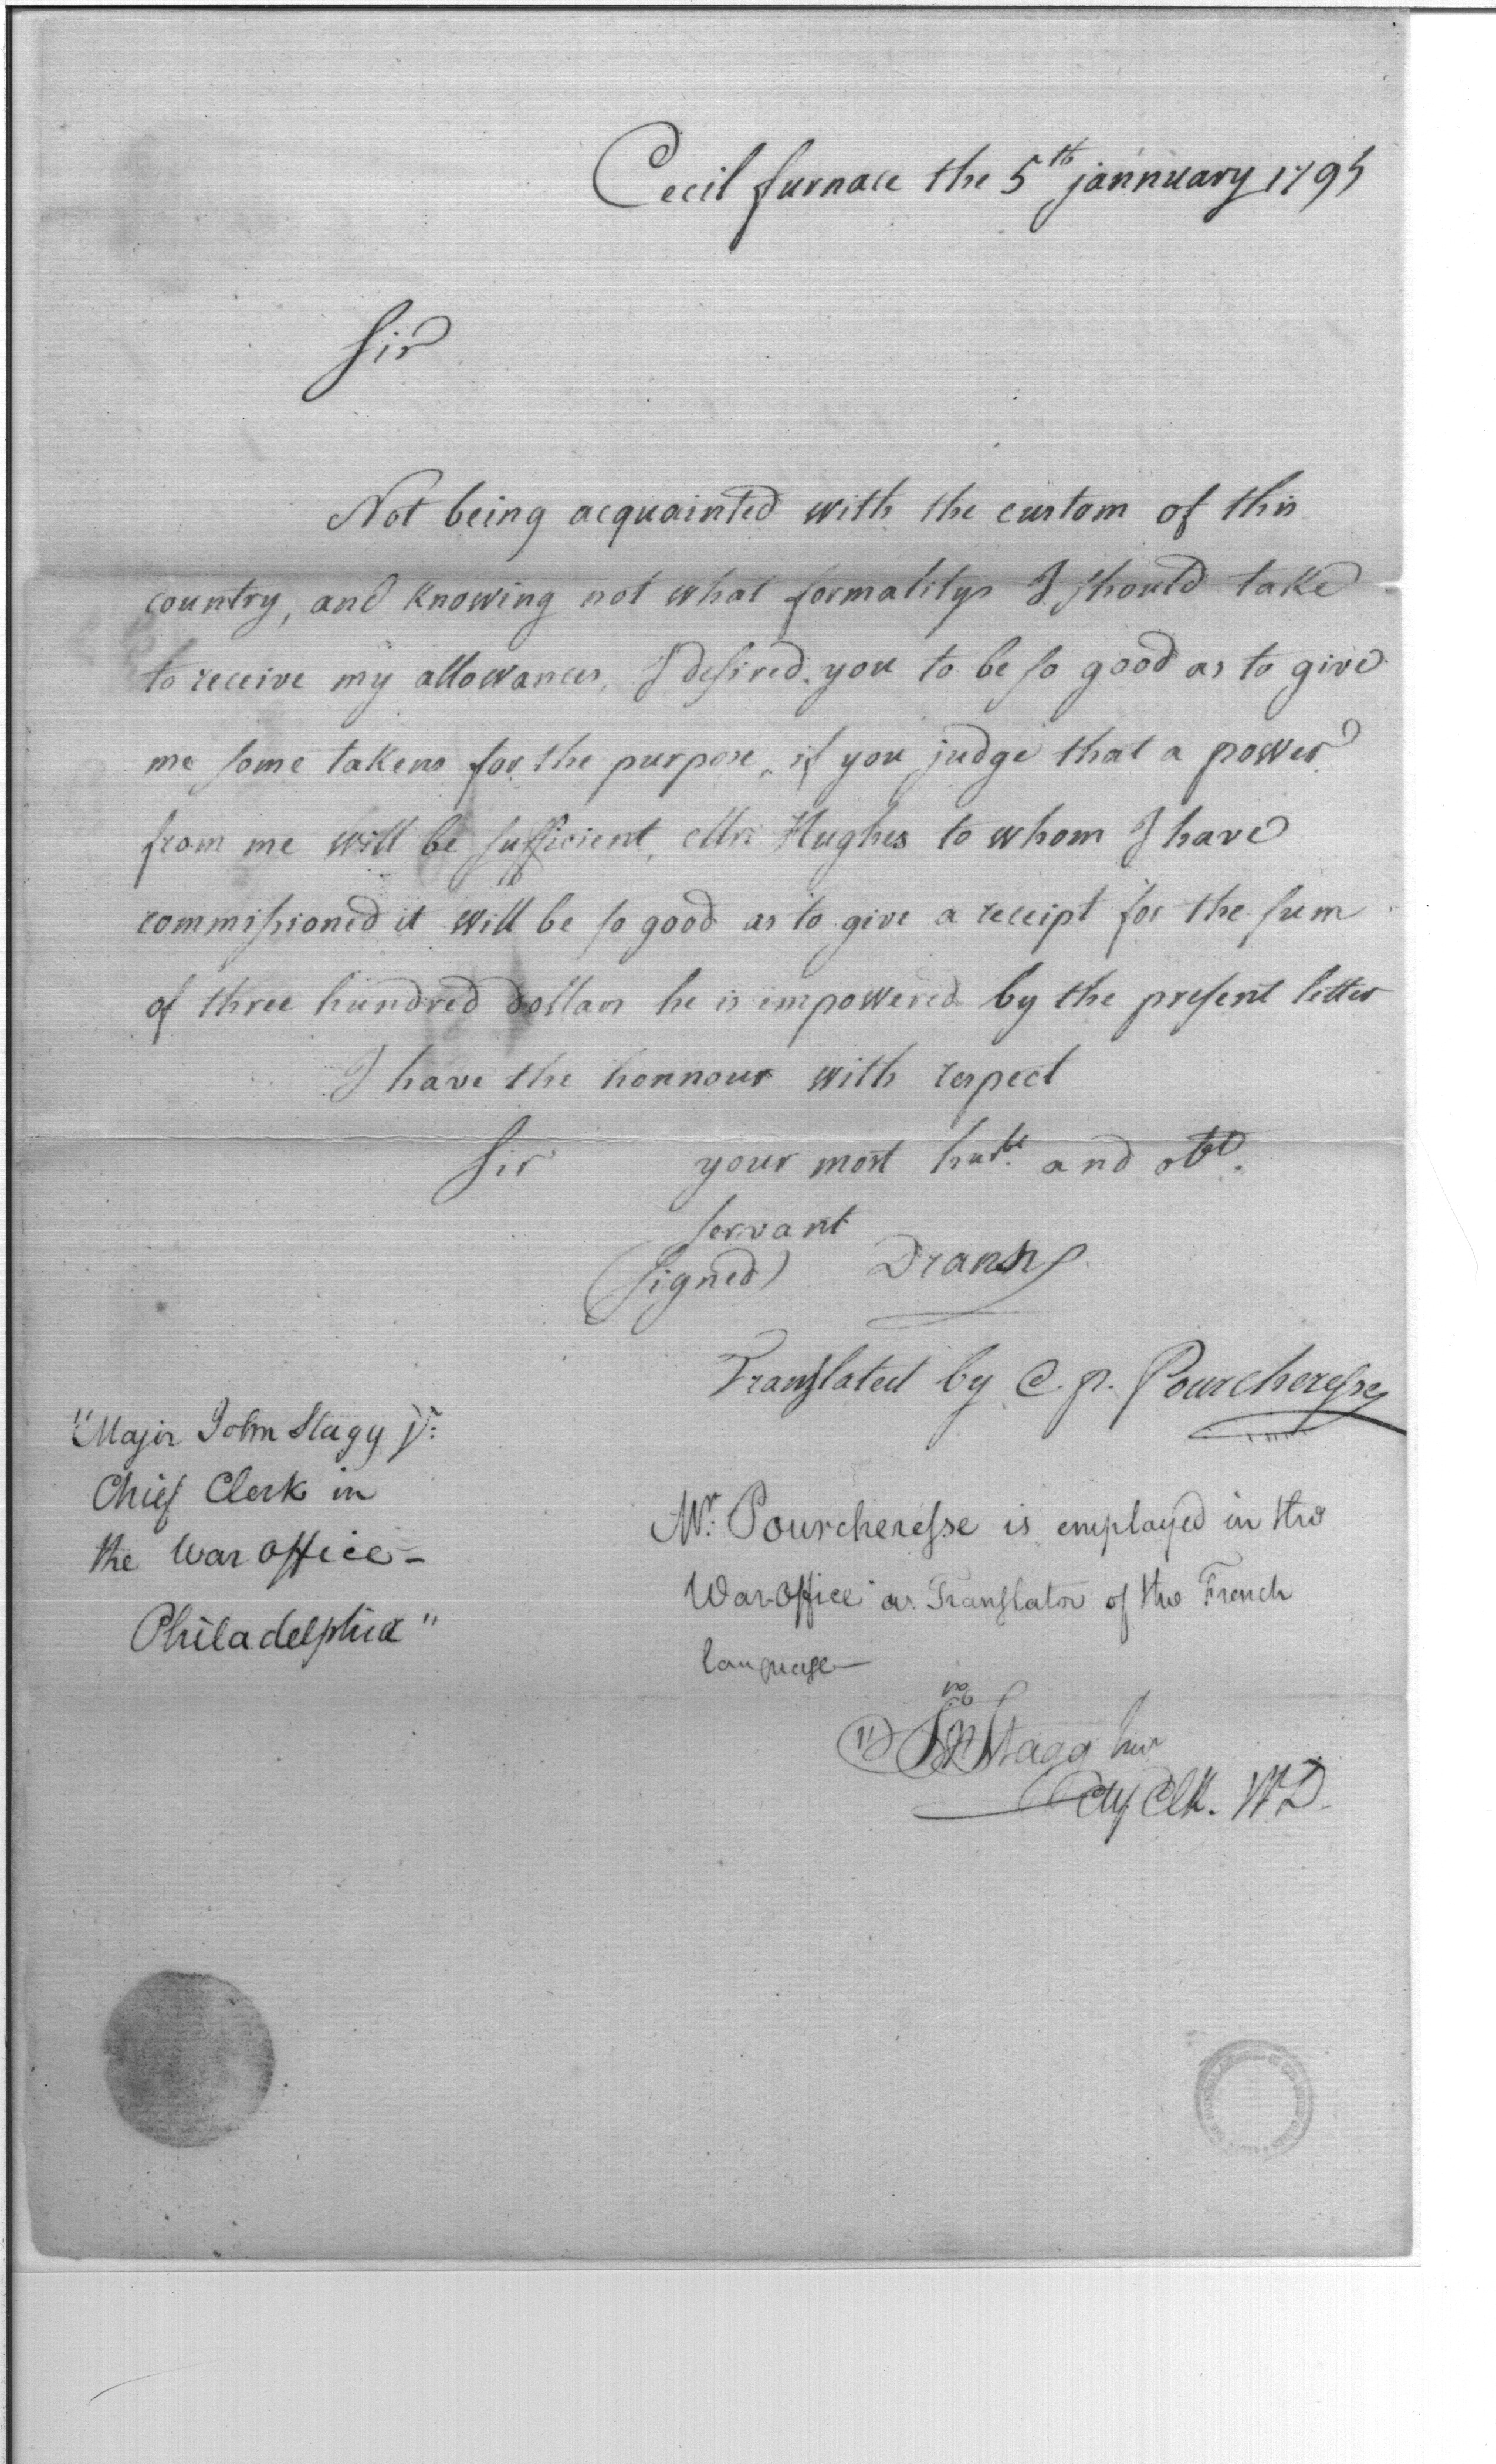 Cecil furnace the 5th jannuary 1795
Sir
Not being acquainted with the custom of this
country, and knowing not what formalitys I should take
to receive my allowances, I desired you to be so good as to give
me some takens for the purpose, if you judge that a power
from me will be sufficient, Mr. Hughes to whom I have
commissioned it will be so good as to give a receipt for the sum
of three hundred dollars he is impowered by the present letter
I have the honnour with respect
Sir your most hubl. and obd.
servant
(Signed)
Translated by C. p. Pourcheresse
"Major John Stagg Jr:
Chief Clerk in
the War office –
Philadelphia"
Mr. Pourcheresse is employed in the
War office as Translator of the French
language –
Jno Stagg Junr
Clk. W D.